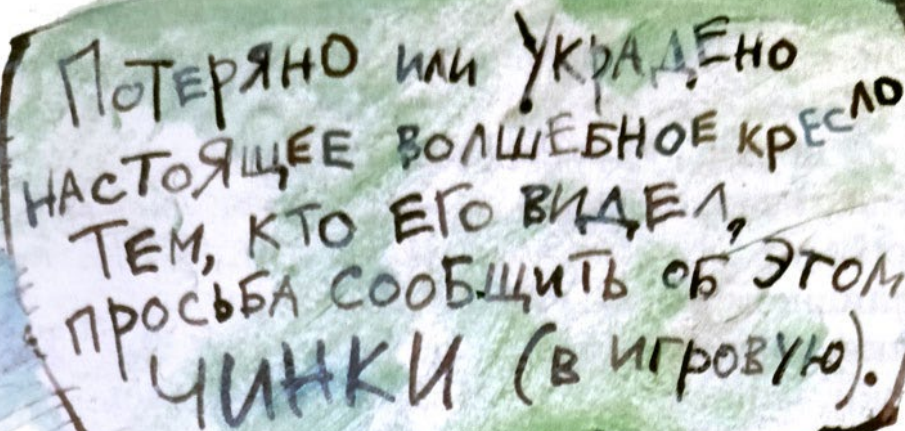 Потеряно или Украдено
настоящее волшебное кресло
Тем, кто его видел,
просьба сообщить об этом
ЧИНКИ (в игровую).